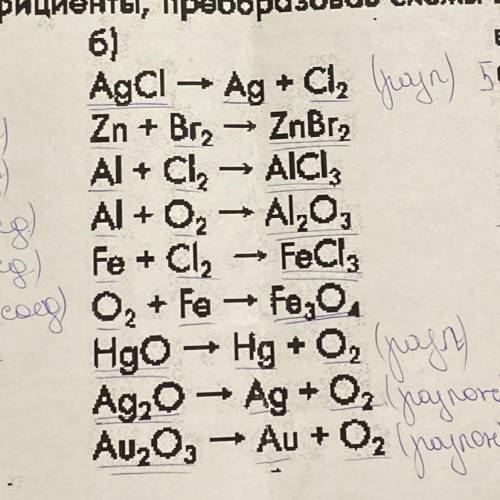 фициенты, преобразовав схемы
б)
AgCl → Ag + Cl₂ (разл)
Zn + Br₂ → ZnBr₂
Al + Cl₂ → AlCl₃
Al + O₂ → Al₂O₃
Fe + Cl₂ → FeCl₃
соед) O₂ + Fe → Fe₃O₄
HgO → Hg + O₂ (разл)
Ag₂O → Ag + O₂
Au₂O₃ → Au + O₂